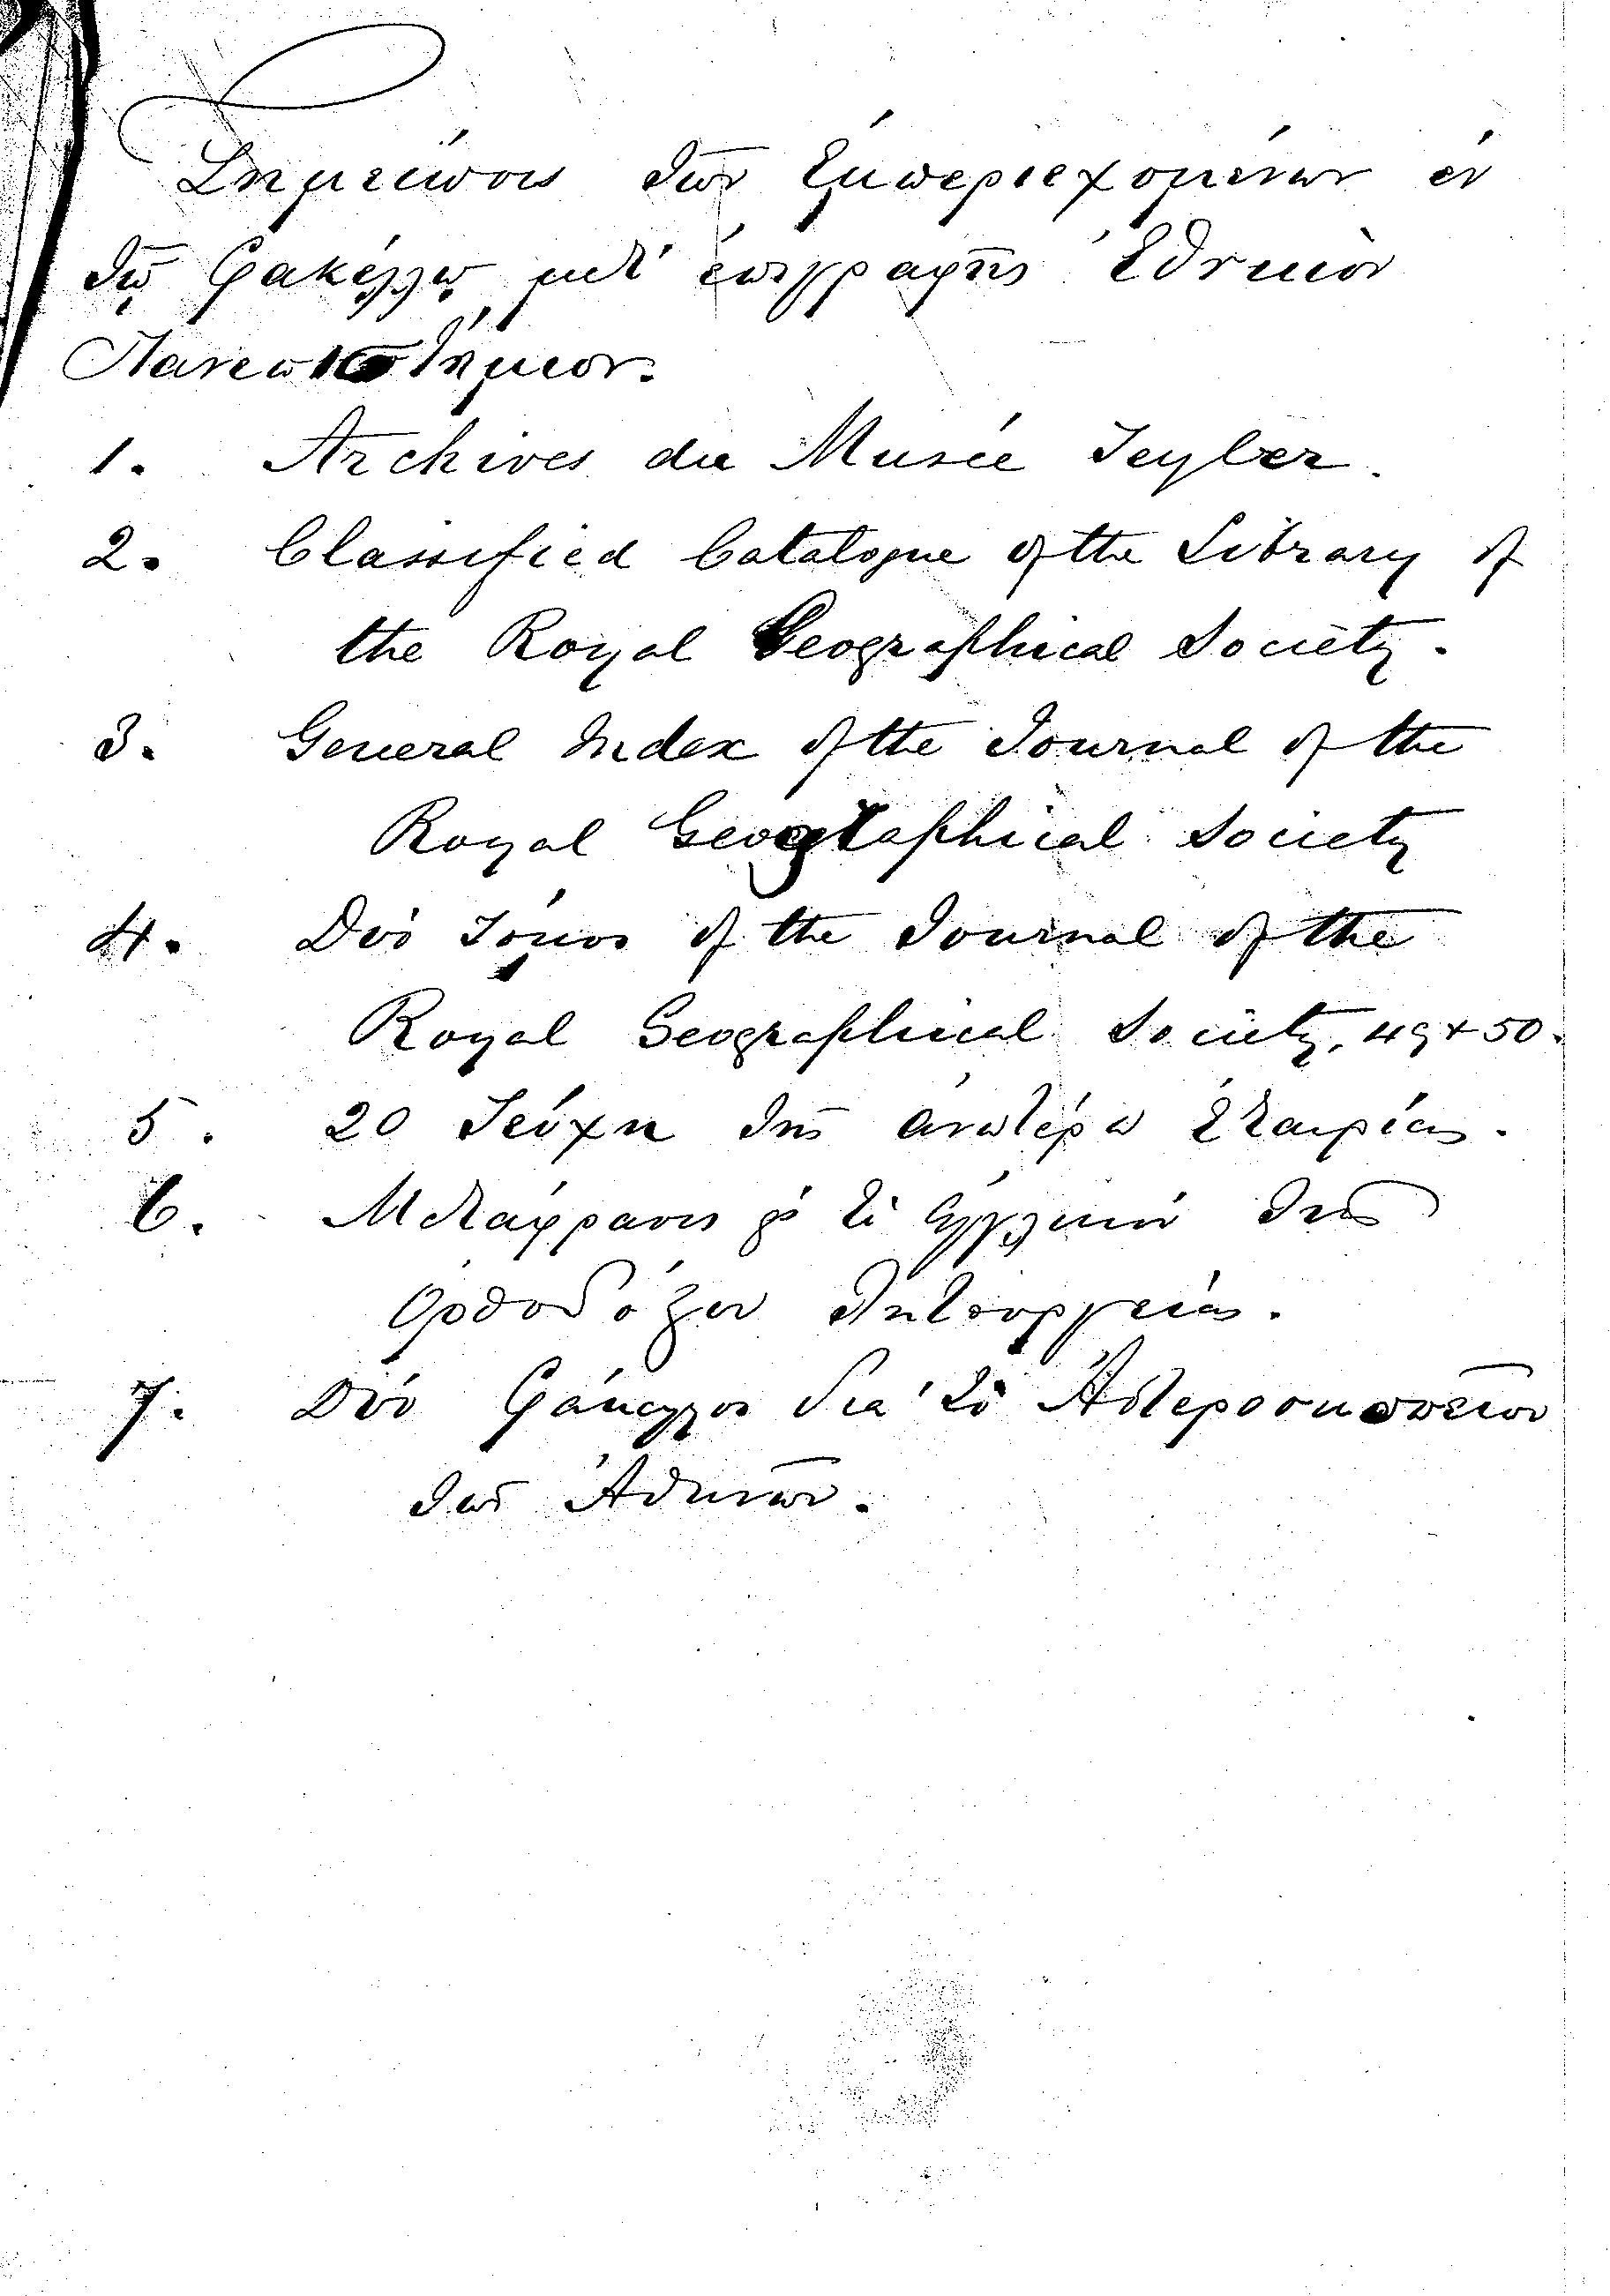 Σημείωσις τῶν ἐμπεριεχομένων ἐν
τῷ Φακέλλῳ μετ' ἐπιγραφῆς Ἐθνικὸν
Πανεπιστήμιον.
1. Archives du Musée Teyler.
2. Classified Catalogue of the Library of
the Royal Geographical Society.
3. General Index of the Journal of the
Royal Geographical Society
4. Δύο Τόμοι of the Journal of the
Royal Geographical Society, 49 & 50.
5. 20 Τεύχη τῆς ἀνωτέρω Ἑταιρίας.
6. Μετάφρασις εἰς τὸ ἀγγλικὸν τῆς
Ορθοδόξου λητουργείας.
7. Δύο Φάκελλοι διὰ τὸ Ἀστεροσκοπεῖον
τῶν Ἀθηνῶν.